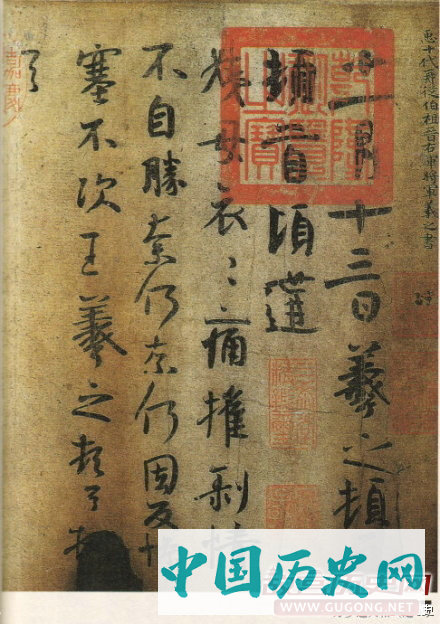 十代再從伯祖晉右軍將軍羲之書
十一月十三日羲之頓
頓首頃遘
姨母哀〻痛摧剝情
不自勝奈何奈何因反慘
塞不次王羲之頓首頓
首
中国历史网
WWW.GUGONG.NET